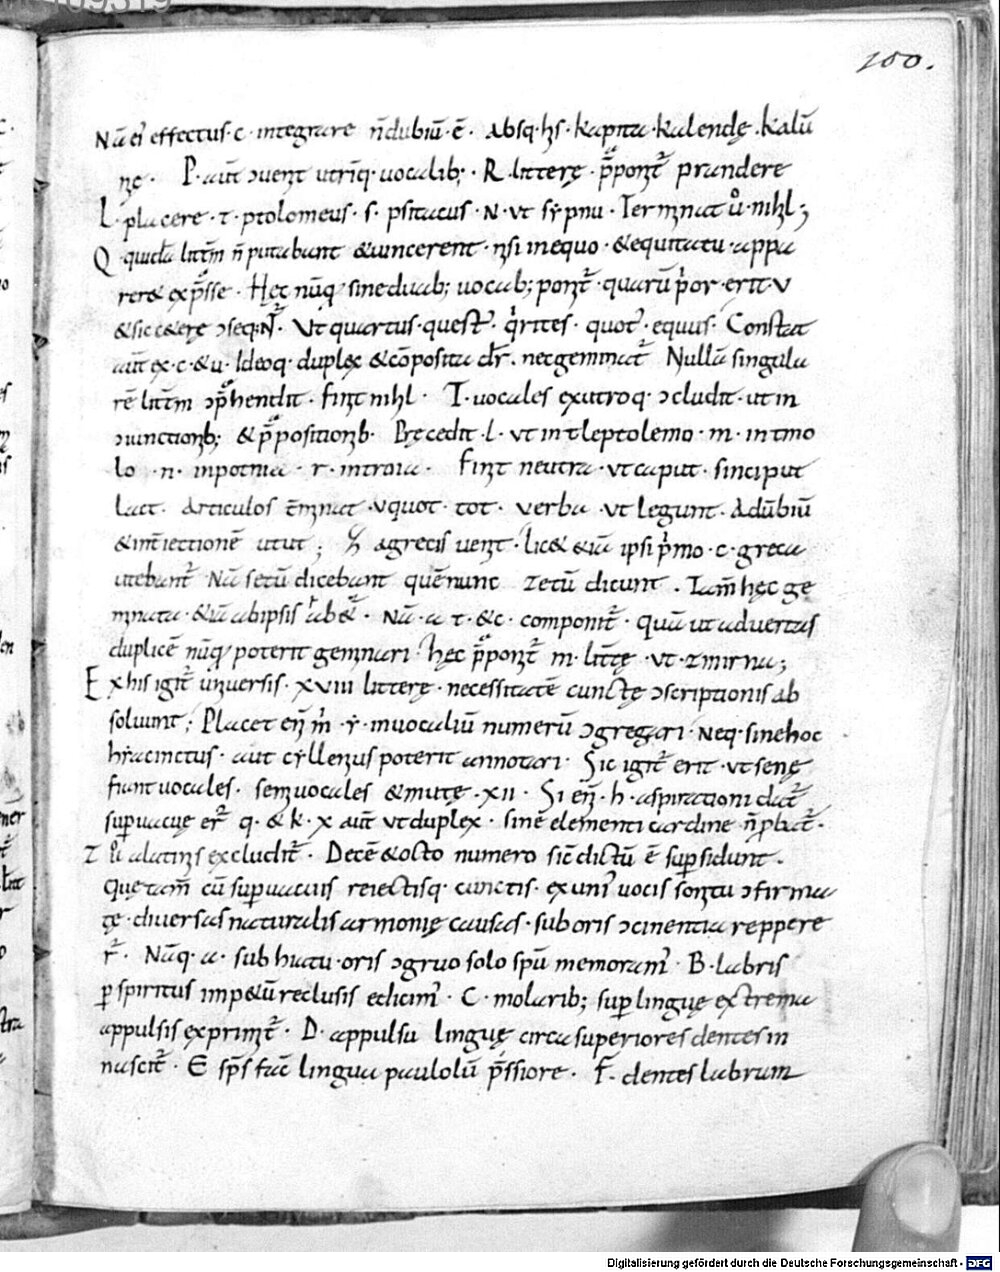 100.
Nā ei effectus · c · integrare n̄ dubiū · ē · absq · his · kapita · kalendę · kalū
P · aut̄ uenit utriq · uocalib; · R · litterę · p̄ponit̄ prandere
L · placere · t · ptolomeus · s · psitacus · N · ut sẏpnu · Terminat ů · nihl;
Q · litt̄m n̄ putabant &uincerent · nisi inequo · &equitatu · appa
Hęc nūq sineduab; uocab; ponit̄ · quarū p̓or · erit · v
Ut quartus · quest̄ · q̓rites · quot̄ · equus · Constat
aut̄ ex · c · & u · Ideoq · duplex & cōposita dr̄ · nec geminat̄ Nullā singula
rē litt̄m ɔp̄hendit · finit nihl · T · uocales exutroq · ɔcludit · ut in
ɔiunctionib; · & p̄positionib · Pręcedit · l · ut in tleptolemo · m · in tmo
lo · n · inpotnia · r · introia · finit neutra · ut caput · sinciput
lact · Articulos t̄minat · v quot · tot · verba · ut legunt · Adūbiū
&int̄iectionē utut ; agrecis uenit · lic& &iā ipsi p̓mo · c · greca
utebant̄ Nā setū dicebant quē nunc zetū dicunt · Tam̄ hęc ge
minata · &iā abipsis · Nā · a · t · & c · componit̄ · quā ut aduertas
duplicē nūq poterit geminari · hęc p̄ponit̄ m · litt̄ę · ut · zmirna;
Ex his igit̄ uniuersis · xviii litterę · necessitatē cunctę ɔscriptionis ab
soluunt; Placet en̄ m̓ · ẏ · in uocaliū numerū ɔgregari · Neq · sine hoc
hẏacinctus · aut cẏllenius poterit annotari · Sic igit̄ erit · ut senę
fiant uocales · semiuocales &mutę · xii · Si en̄ · h · aspirationi dat̄
supuacuę er̄ q · & k · x aut̄ ut duplex · sine elementi cardine n̄ pbat̄ ·
Z ů alatinis excludit̄ · Decē &octo numero sic dictū ē sup sidunt ·
Quę tam̄ cū supuacuis reiectisq · cunctis · ex uni' uocis sonitu ɔfirma
tę · diuersas naturalis armonię causas · sub oris ɔcinentia reppere
r̄ · Nāq · a · sub hiatu · oris ɔgruo solo spū memoram' · B · labris
p spiritus imp&ū reclusis edicim' · C · molarib; sup linguę extrema
appulsis exprimit̄ · D · appulsu linguę circa superiores dentes in
nascit̄ · E sp̄s fac̄ lingua paulolū p̄ssiore · F · dentes labrum
Digitalisierung gefördert durch die Deutsche Forschungsgemeinschaft - DFG